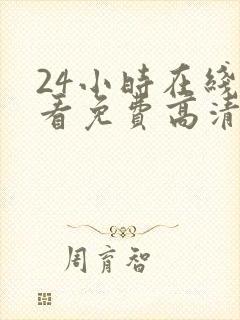 24小時在綫
看免費高清
周育智